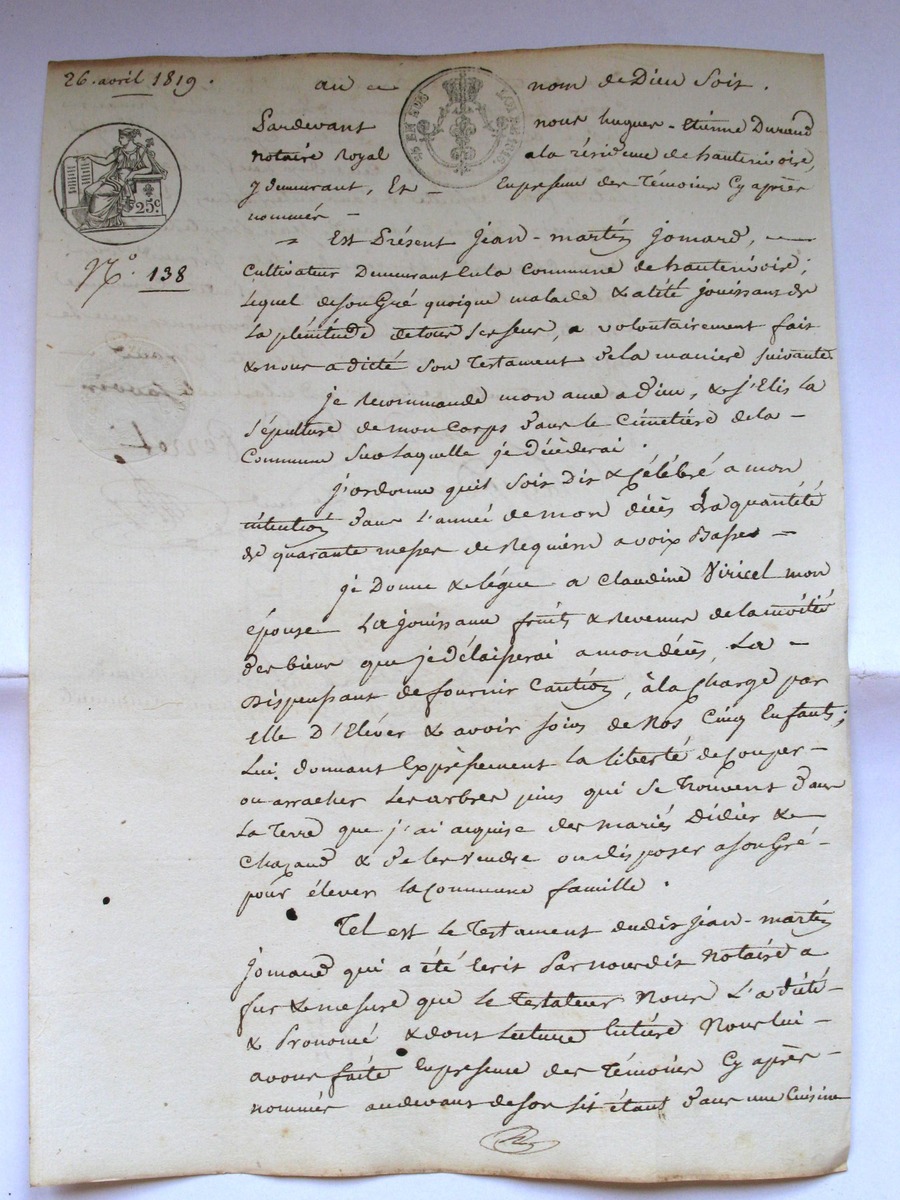 26. avril 1819.
au nom de Dieu Soit.
25 c.
N.° 138
Pardevant nous hugues-Etienne Durand
notaire Royal a la résidence de hauterivoire,
y demeurant, Et En presence des Témoins Cy après
nommés
Est Présent Jean-martin Jomard,
Cultivateur Demeurant En la Commune de hauterivoire;
Lequel de son Gré quoique malade & alité jouissant de
La plénitude de tous Ses Sens, a volontairement fait
& nous a dicté Son Testament de la maniere suivante
je recommande mon ame a Dieu, & j'Elis la
sépulture de mon Corps dans le Cimetière de la
Commune Sur laquelle je décèderai.
J'ordonne quil soit Dit & Célébré a mon
intention dans L'année de mon décès La quantité
de quarante messes de Requiem a voix Basse
je Donne & légue a Claudine Viricel mon
épouse La jouissance fruits & revenus de la moitié
des biens que je délaisserai a mon décès, La
Dispensant de fournir Caution, à la Charge par
elle D'Elever & avoir soins de Nos Cinq Enfants;
Lui donnant Expressement la liberté de Couper
ou arracher Les arbres pins qui se trouvent dans
La Terre que j'ai acquise des mariés Didier &
Chazaud & de les vendre ou disposer a son Gré
pour élever la Commune famille.
Tel est le Testament dudit Jean-martin
Jomard qui a été Ecrit Par nous dit Notaire a
fur & mesure que Le Testateur Nous L'a dicté
& Prononcé & dont Lecture Entière Nous lui
avons faite En presence des Témoins Cy après
nommés au devant de son lit étant dans une Cuisine